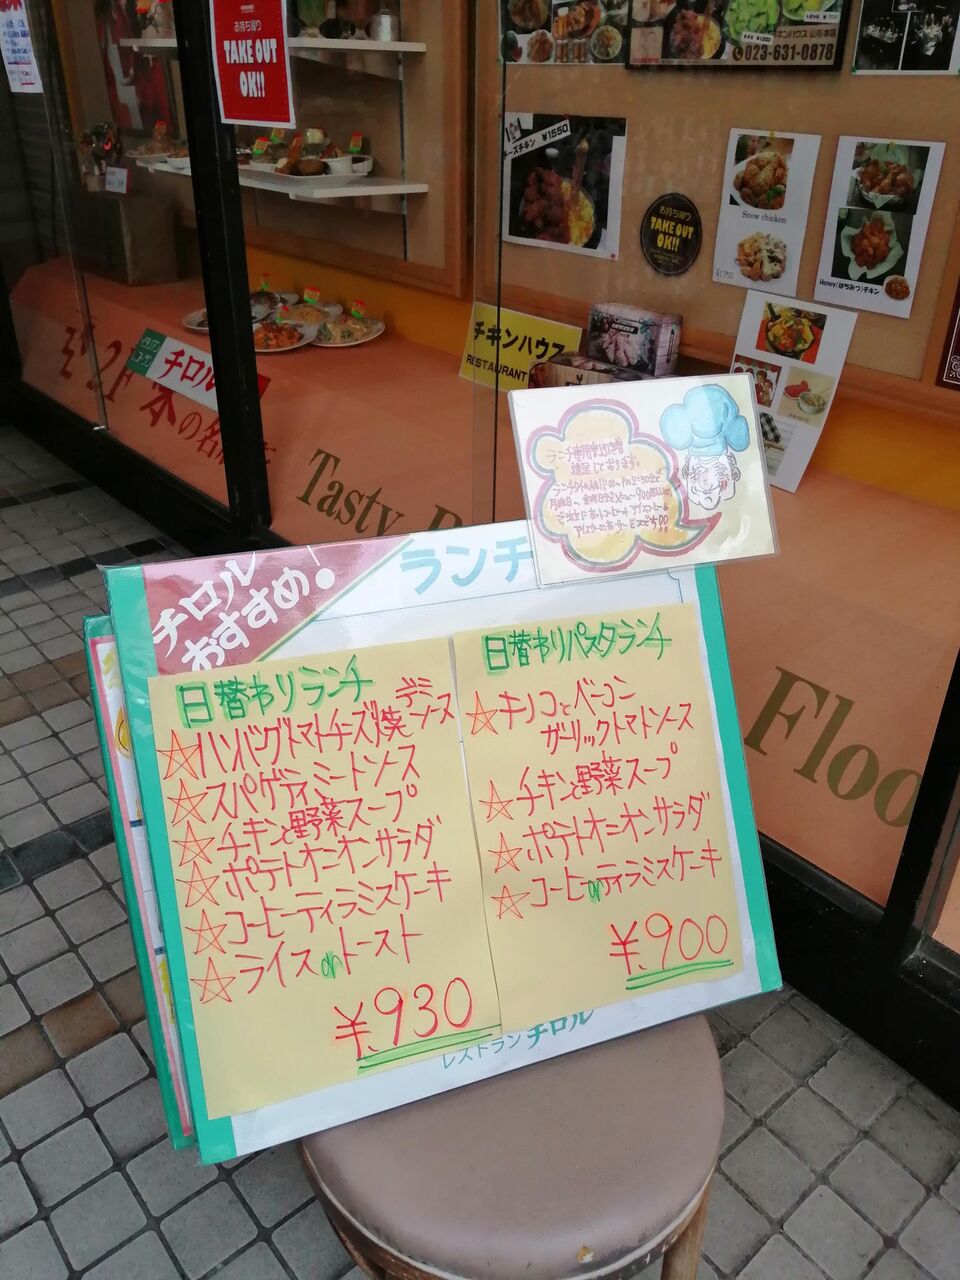 お持ち帰り
TAKE OUT
OK!!
チキンハウス 山形本店
023-631-0878
チーズチキン ¥1550
お持ち帰り
TAKE OUT
OK!!
Snow chicken
Honey(はちみつ)チキン
チキンハウス
RESTAURANT
チロル
2F
の名
Tasty
Floo
チロル
おすすめ!
ランチ
日替わりランチ
☆ハンバーグトマトチーズ焼デミソース
☆スパゲティミートソース
☆チキンと野菜スープ
☆ポテトオニオンサラダ
☆コーヒーティラミスケーキ
☆ライスorトースト
¥930
日替わりパスタランチ
☆キノコとベーコン
ガーリックトマトソース
☆チキンと野菜スープ
☆ポテトオニオンサラダ
☆コーヒorティラミスケーキ
¥900
レストランチロル